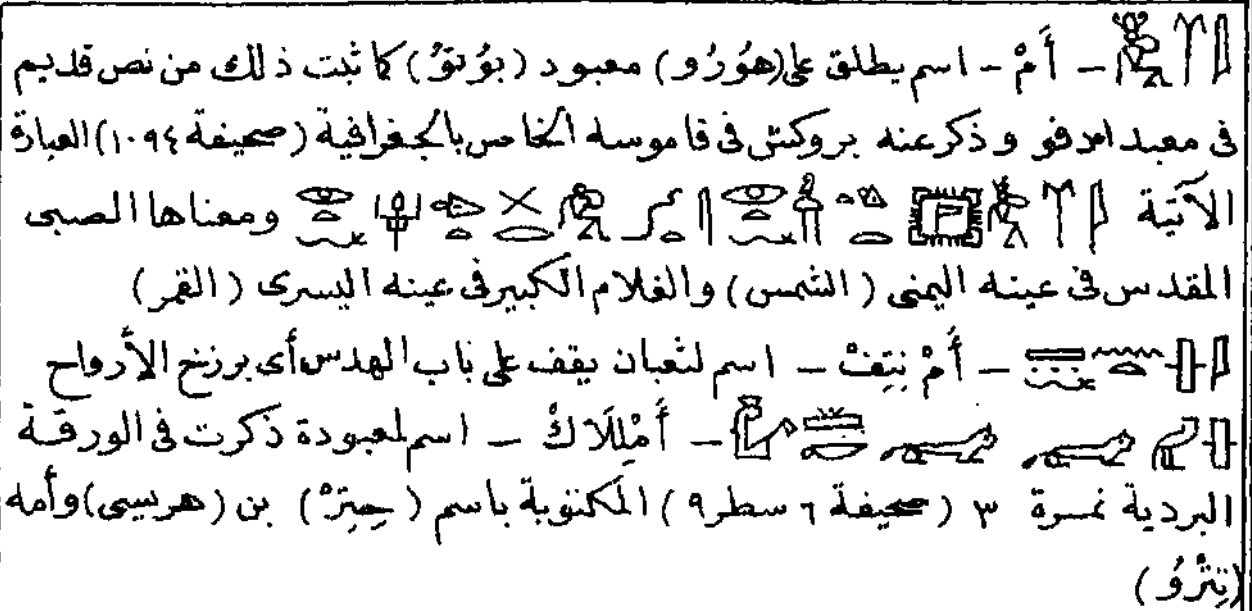 – أَمْ – اسم يطلق على (هُوُرُو) معبود (بوُتوُ) كما ثبت ذلك من نص قديم
فى معبد ادفو وذكر عنه بروكش فى قاموسه الخامس بالجغرافية (صحيفة ١٠٩٤) العبارة
الآتية ومعناها الصبى
المقدس فى عينه اليمنى (الشمس) والغلام الكبير فى عينه اليسرى (القمر)
– أَمْ نِتِفْ – اسم لثعبان يقف على باب الهدس أى برزخ الأرواح
– أَمْلِلَاكْ – اسم لمعبودة ذكرت فى الورقة
البردية نمرة ٣ (صحيفة ٦ سطر ٩) المكتوبة باسم (حِتِرْ) بن (هرسيى) وأمه
(تِتْرُو)